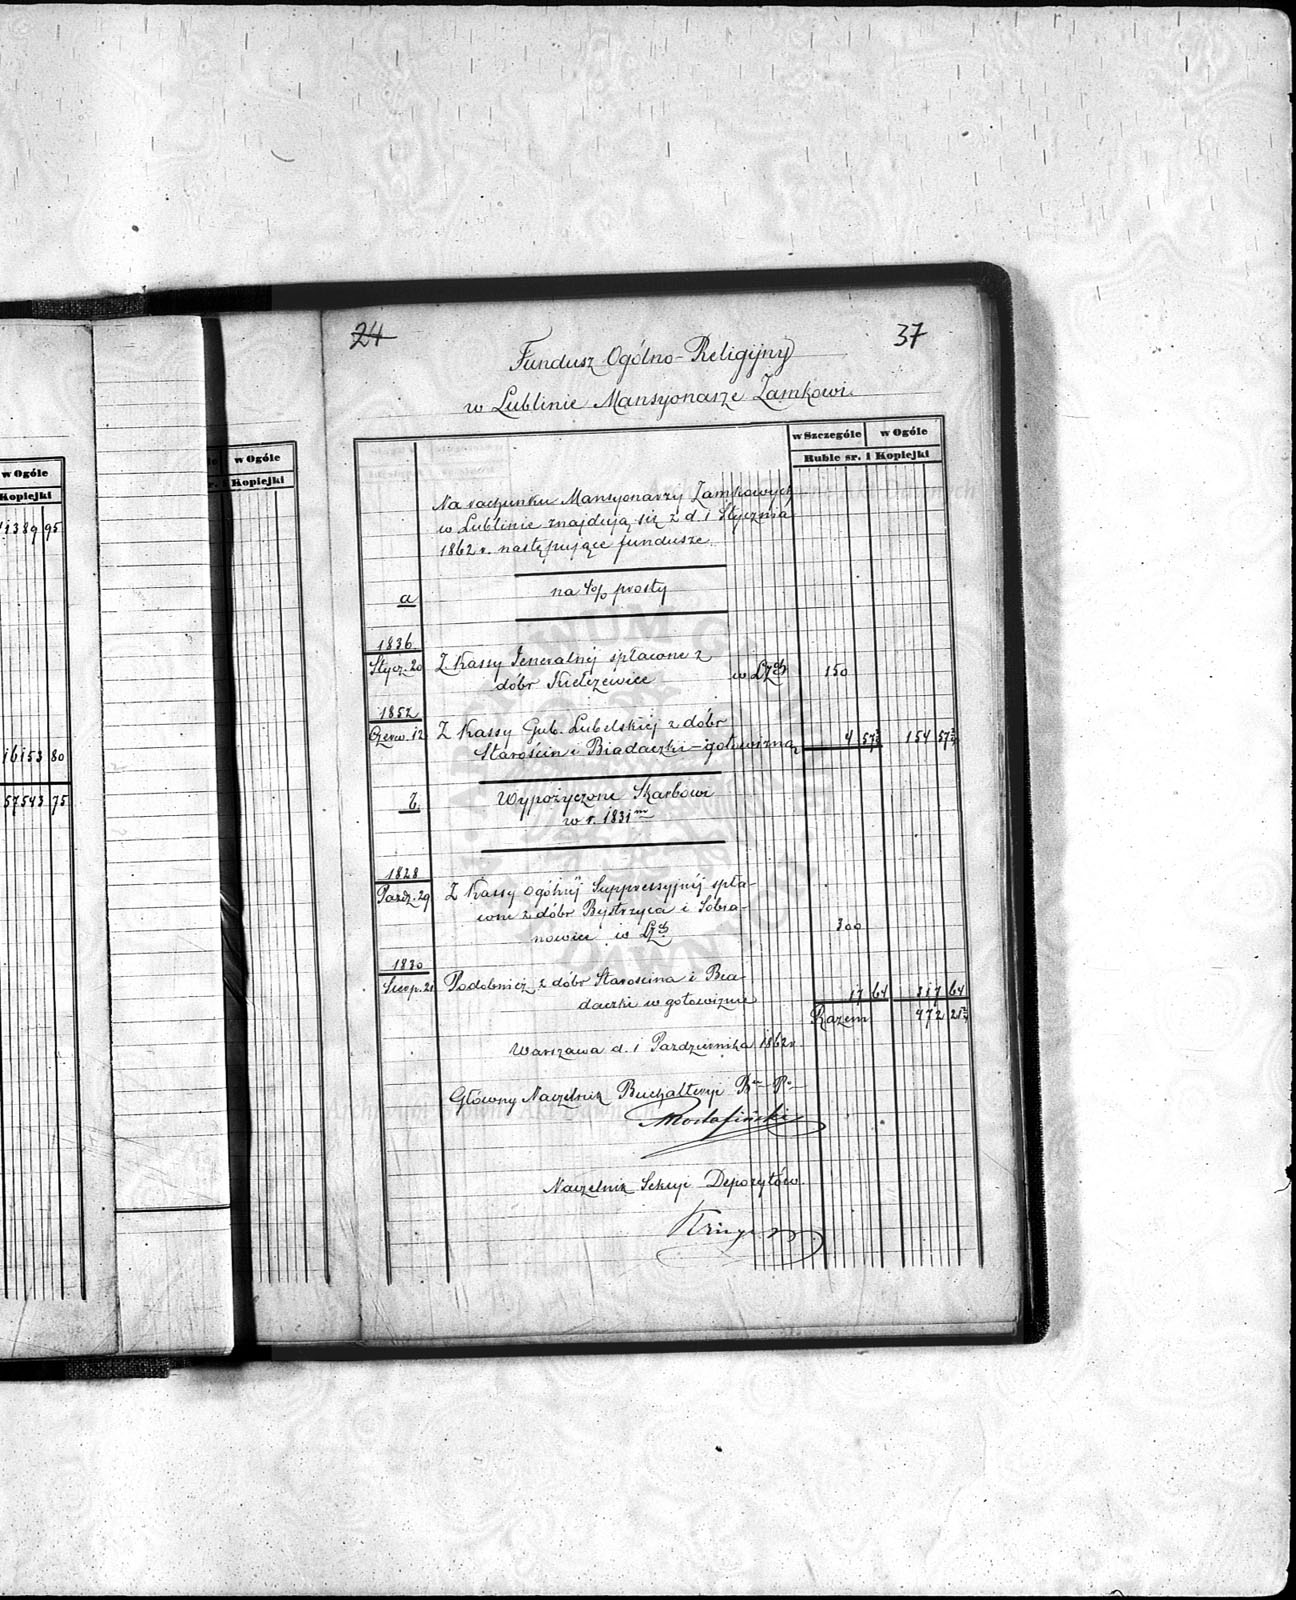 w Ogóle
Kopiejki
1389 95
16153 80
57543 75
w Ogóle
Kopiejki
24
37
Fundusz Ogólno-Religijny
w Lublinie Mansyonarze Zamkowi.
w Szczególe w Ogóle
Ruble sr. i Kopiejki
Na rachunku Mansyonarzy Zamkowych
w Lublinie znajdują się z d. 1 Stycznia
1862 r. następujące fundusze.
a na 4% prosty
1836
Stycz. 20 Z Kassy Jeneralnéj spłacone z
dóbr Kiełczewice w Lzch 150
1852
Czerw. 12 Z Kassy Gub. Lubelskiej z dóbr
Starościn i Biadaczki – gotowizną 4 57½ 154 57½
b. Wypożyczone Skarbowi
w r. 1831m
1828
Paźdz. 29 Z Kassy Ogólnéj Suppressyjnéj spła-
cone z dóbr Bystrzyca i Sobia-
nowice w Lzch 300
1830
Sierp. 21 Podobnież z dóbr Starościna i Bia
daczki w gotowiznie 17 64 317 64
Razem 472 21½
Warszawa d. 1 Pazdziernika 1862 r.
Główny Naczelnik Buchalteryi
Naczelnik Sekcyi Depozytów